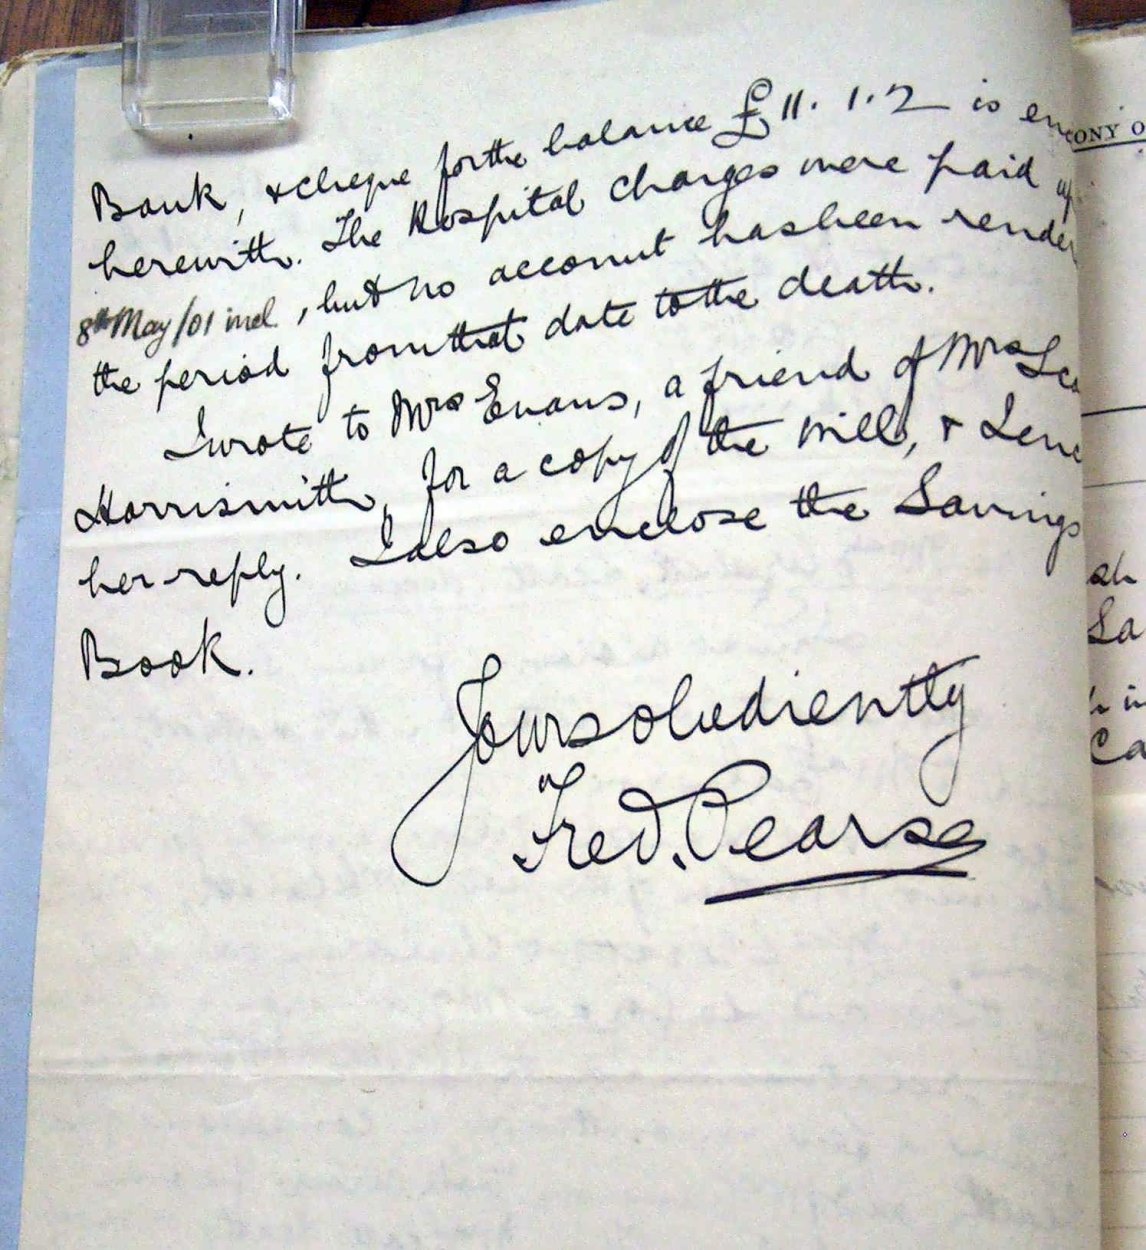 Bank, & cheque for the balance £11.1.2 is en
herewith. The Hospital charges were paid up
8th May/01 incl., but no account has been rende
the period from that date to the death.
I wrote to Mrs Evans, a friend of Mrs
Harrismith, for a copy of the will, & I enc
her reply. I also enclose the Savings
Book.
Yours obediently
Fred. Pearse
ONY O